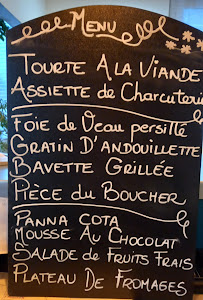 Menu
Tourte A La Viande
Assiette de Charcuterie
Foie de Veau persillé
Gratin D'andouillette
Bavette Grillée
Pièce du Boucher
Panna cota
Mousse Au Chocolat
Salade de Fruits Frais
Plateau De Fromages